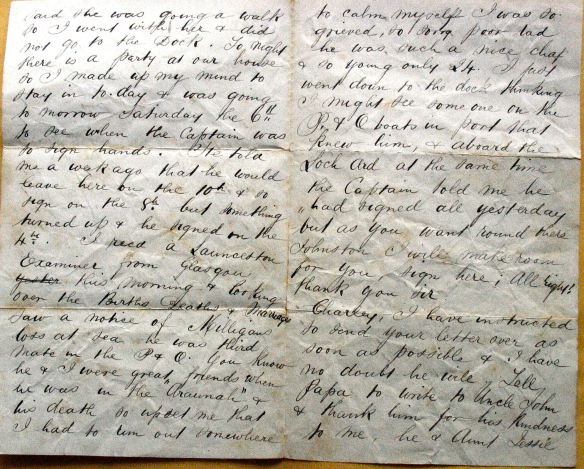 said she was going a walk
so I went with her & did
not go to the Dock. To night
there is a party at our house
so I made up my mind to
stay in to-day & was going
to morrow Saturday the 6th
to see when the Captain was
to sign hands. He told
me a week ago that he would
leave here on the 10th & so
sign on the 8th but something
turned up & he signed on the
4th. I recd a Launceston
Examiner from Glasgow
this morning & looking
over the Births Deaths & Marriages
saw a notice of Milligans
loss at sea he was third
mate in the P & O. You know
he & I were great friends when
he was in the "
his death so upset me that
I had to run out somewhere
to calm myself I was so
grieved, so sorry poor lad
he was such a nice chap
& so young only 24. I just
went down to the dock thinking
I might see some one on the
P. & O boats in port that
knew him, & aboard the
Loch Ard at the same time
the Captain told me he
"had signed all yesterday
but as you want round there
Johnston I will make room
for you sign here, All right!
thank you Sir.
Charley, I have instructed
to send your letter over as
soon as possible & I have
no doubt he will. Tell
Papa to write to Uncle John
& thank him for his kindness
to me, he & Aunt Jessie